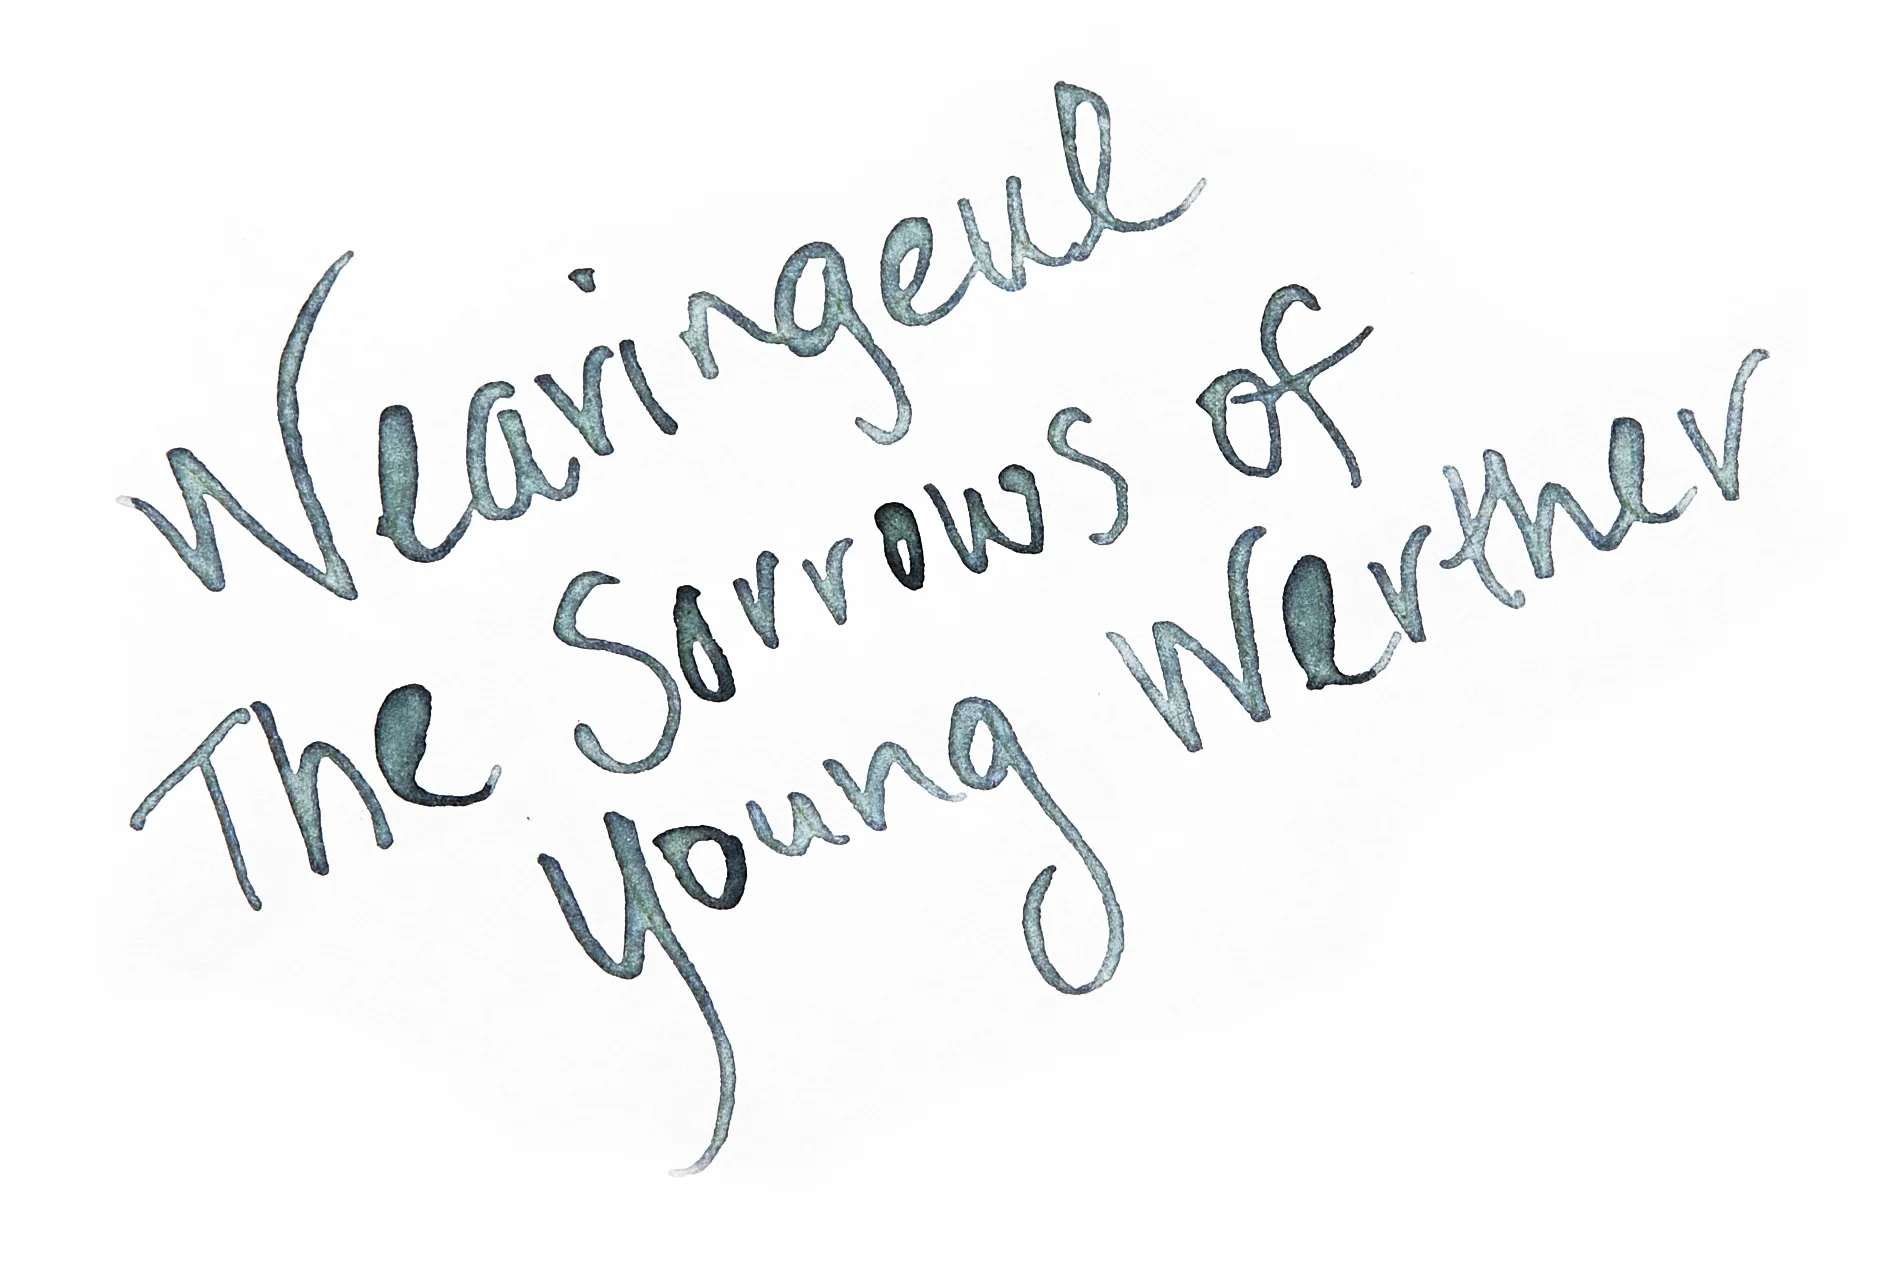 Wearingeul
The Sorrows of
Young Werther